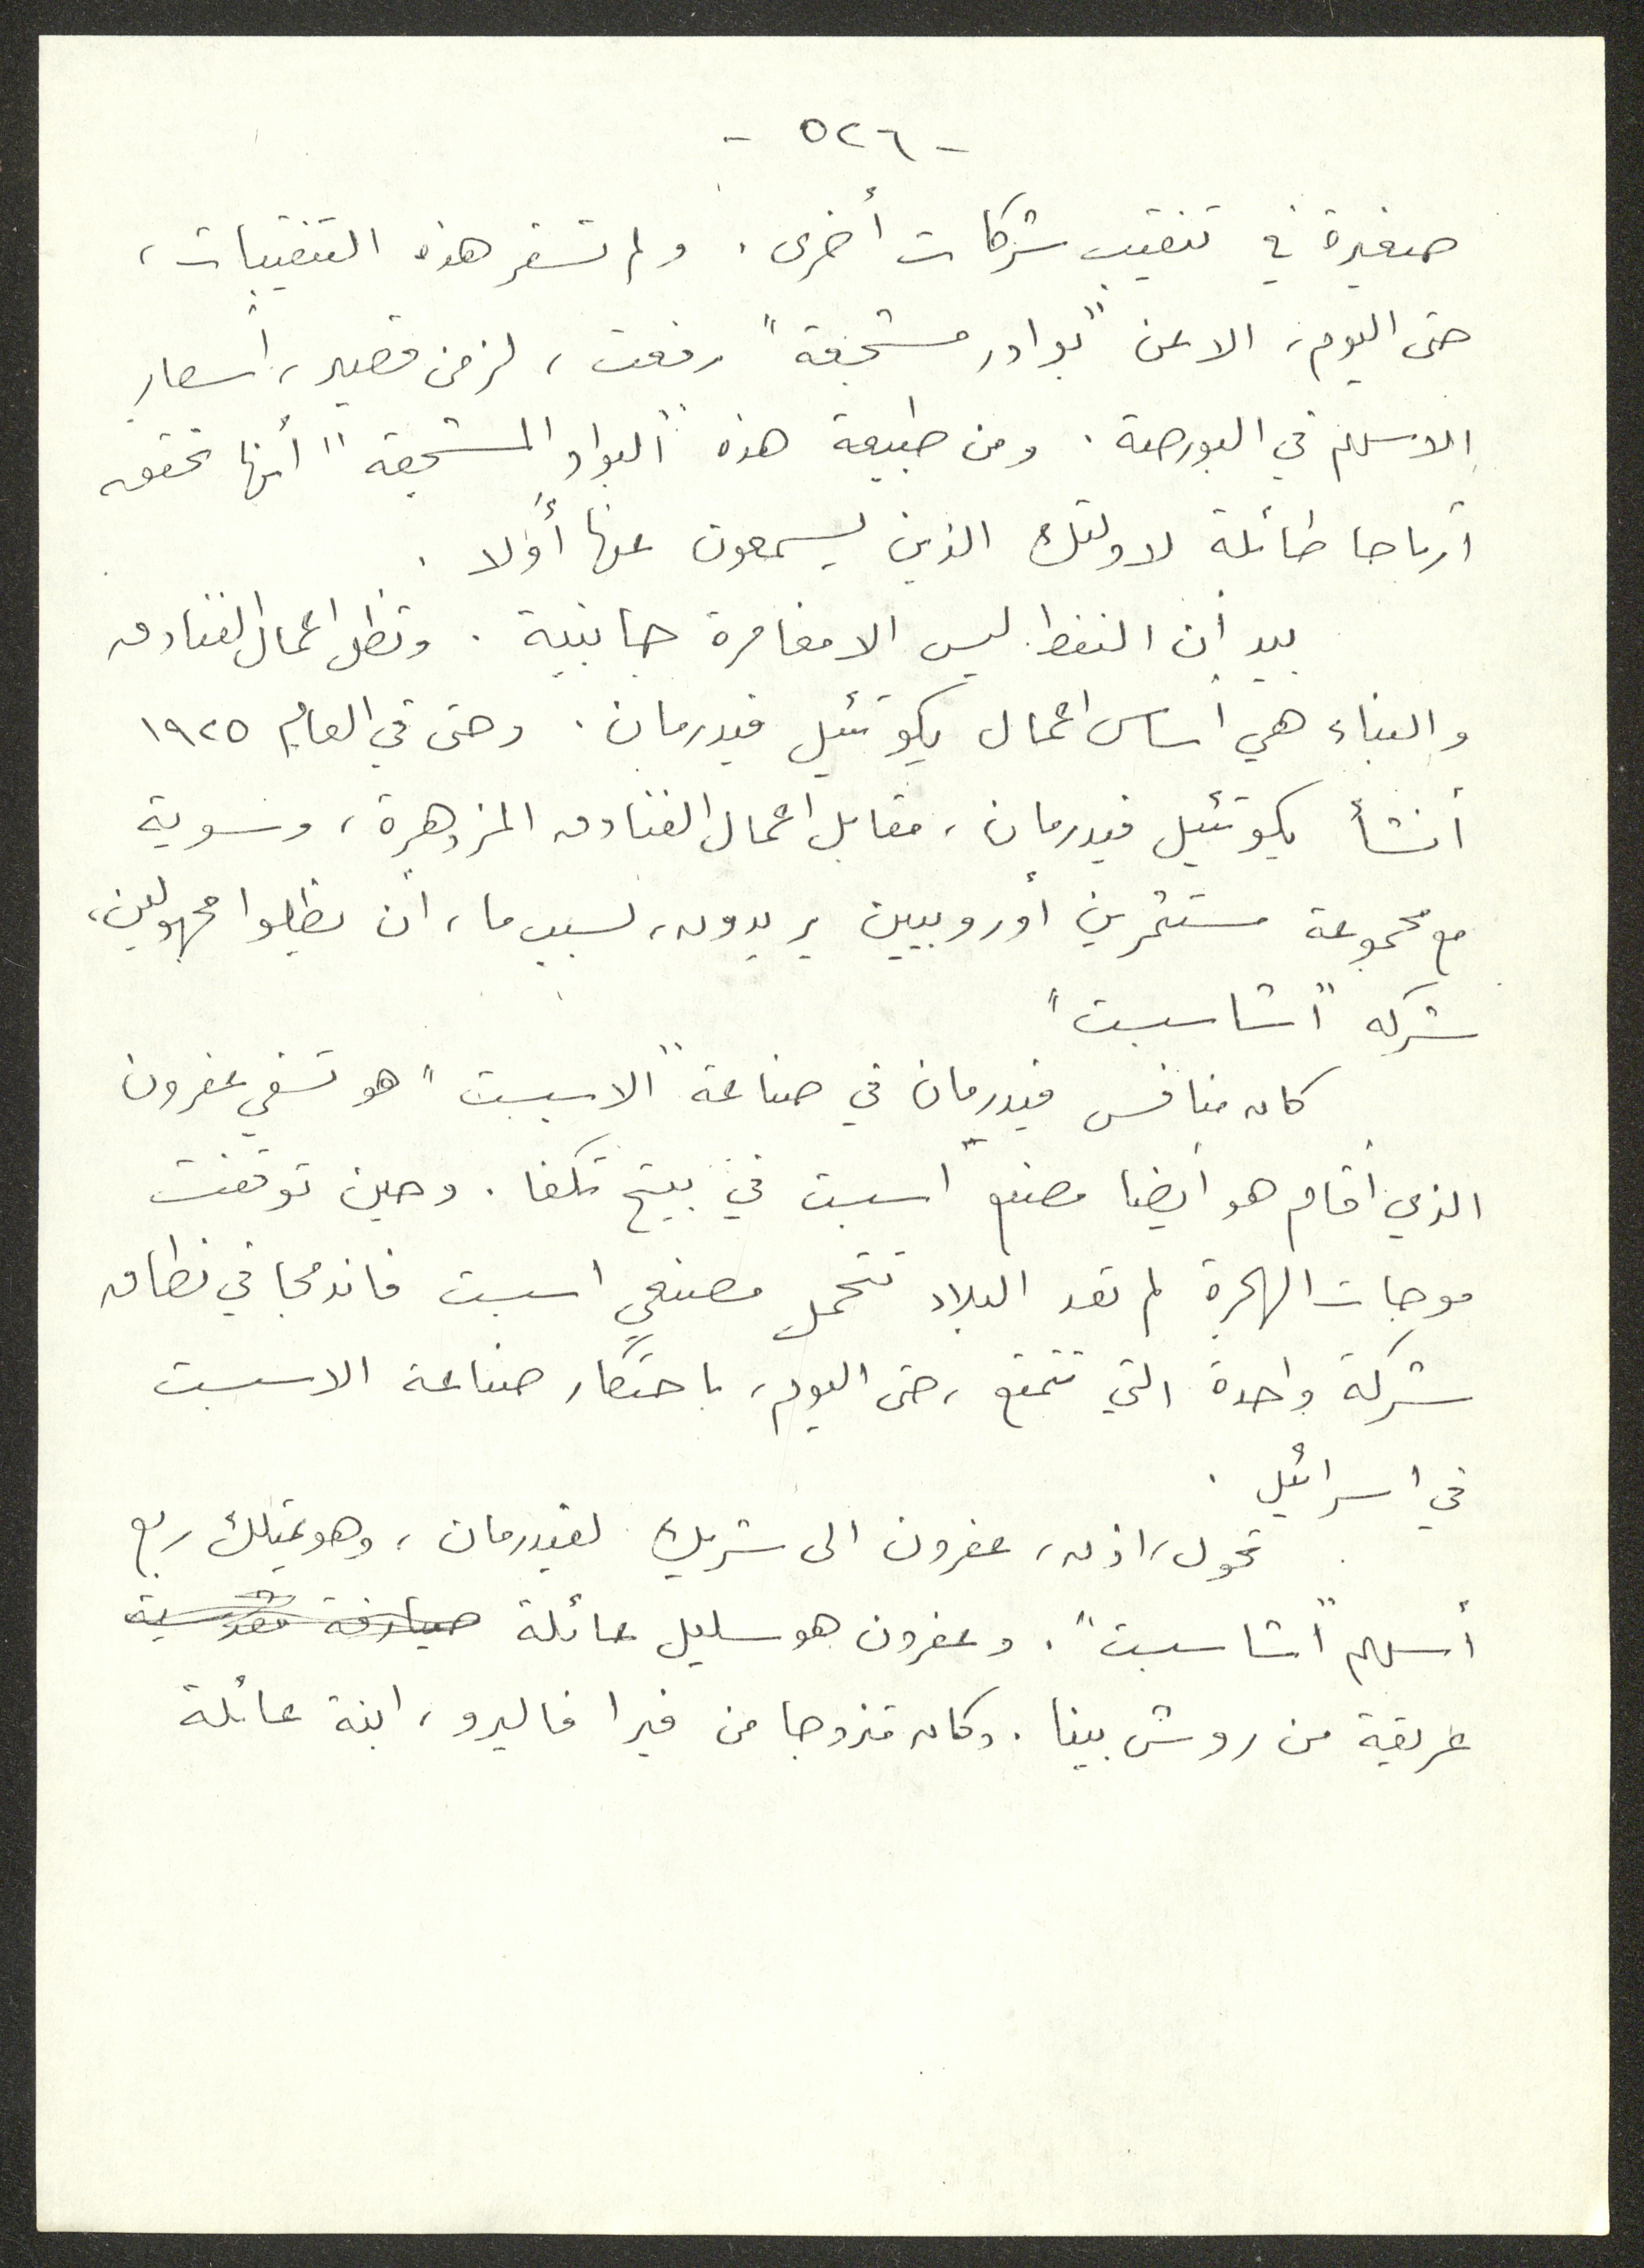 - ٥٢٦ -
صغيرة في تنقيب شركات أخرى . ولم تسفر هذه التنقيبات ،
حتى اليوم ، الا عن "بوادر مشجعة" رفعت ، لزمن قصير ، أسعار
الاسهم في البورصة . ومن طبيعة هذه "البواد المشجعة" أنها تحقق
أرباحا طائلة لاولئك الذين يسمعون عنها أولا .
بيد أن النفط ليس الا مغامرة جانبية . وتظل اعمال الفنادق
والبناء هي أساس اعمال يكوتئيل فيدرمان . وحتى في العام ١٩٢٥
أنشأ يكوتئيل فيدرمان ، مقابل اعمال الفنادق المزدهرة ، وسوية
مع مجموعة مستثمرين أوروبيين يريدون ، لسبب ما ، أن يظلوا مجهولين ،
شركة "أشاسبت"
كان منافس فيدرمان في صناعة "الاسبست" هو تسفي عفرون
الذي أقام هو أيضا مصنع "اسبت في بيتح تكفا . وحين توقفت
موجات الهجرة لم تعد البلاد تتحمل مصنعي اسبت فاندمجا في نطاق
شركة واحدة التي تتمتع ، حتى اليوم ، باحتكار صناعة الاسبست
في اسرائيل .
تحول ، اذن ، عفرون الى شريك لفيدرمان ، وهو يمتلك ربع
أسهم "أشاسبت" . وعفرون هو سليل عائلة صيارفة مقدسية
عريقة من روش بينا . وكان متزوجا من فيرا فاليرو ، ابنة عائلة